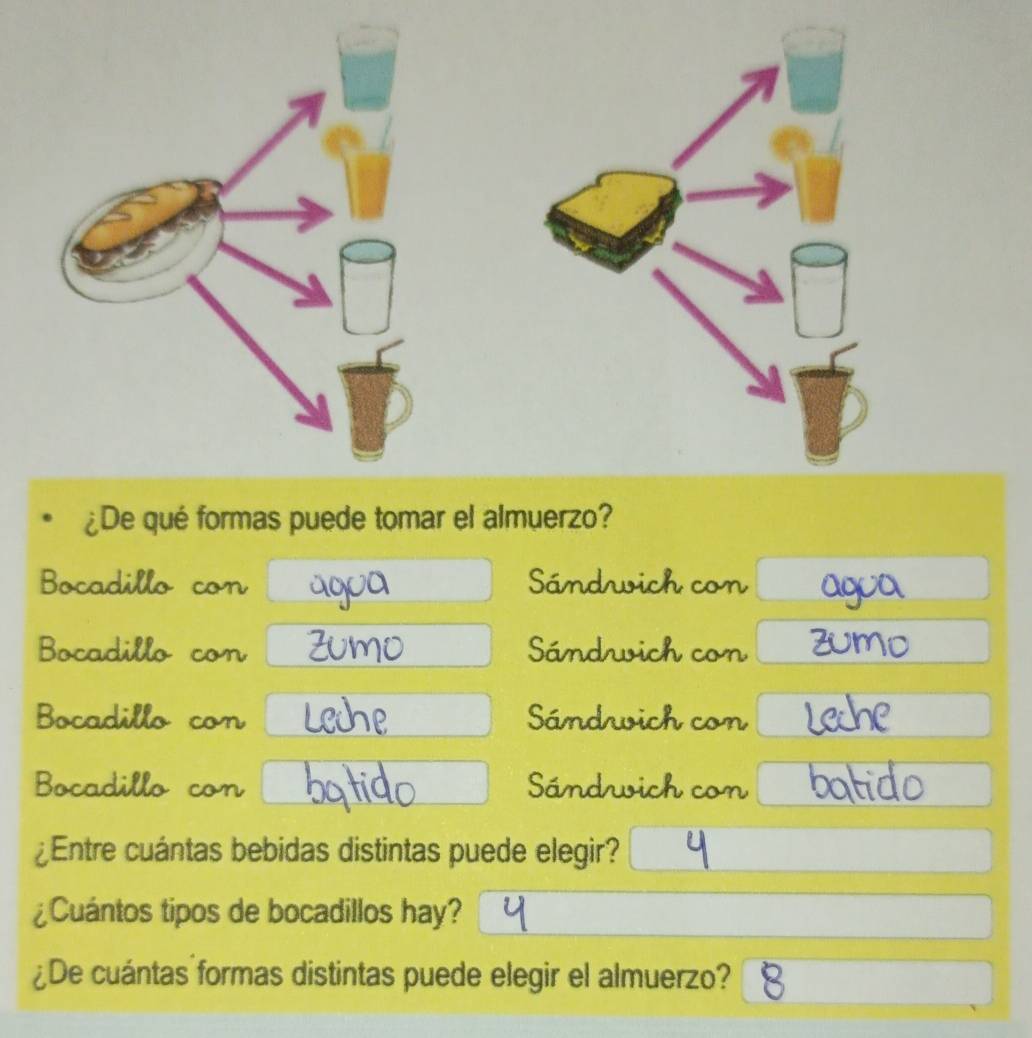 • ¿De qué formas puede tomar el almuerzo?
Bocadillo con agua Sándwich con agua
Bocadillo con zumo Sándwich con zumo
Bocadillo con Leche Sándwich con Leche
Bocadillo con batido Sándwich con batido
¿Entre cuántas bebidas distintas puede elegir? 4
¿Cuántos tipos de bocadillos hay? 4
¿De cuántas formas distintas puede elegir el almuerzo? 8